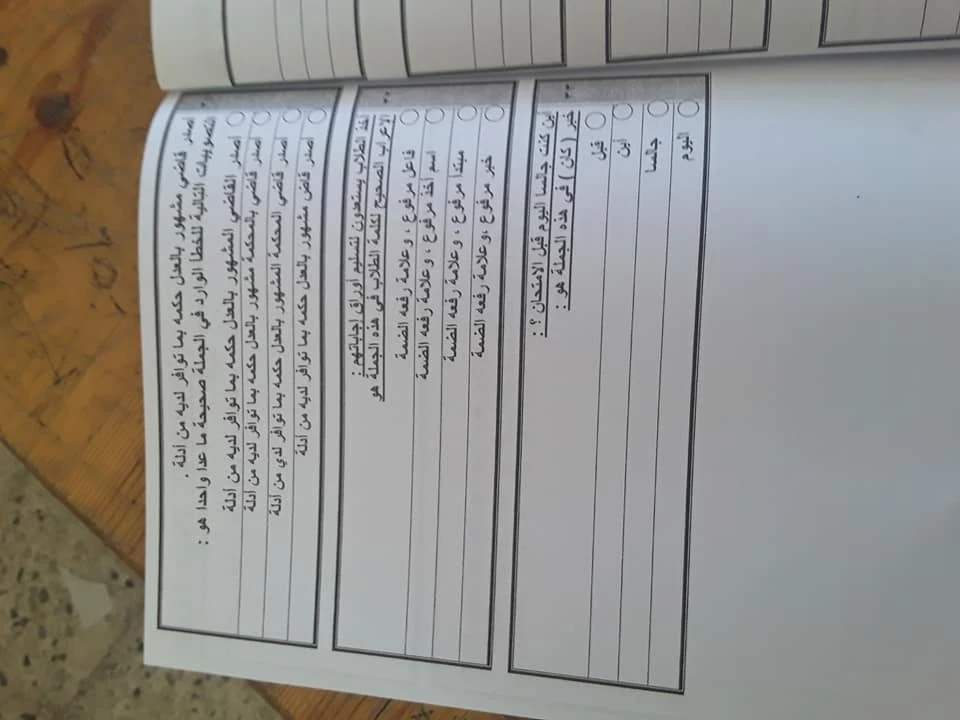 أصدر قاضي مشهور بالعدل حكمه بما توافر لديه من أدلة .
التصويبات التالية للخطا الوارد في الجملة صحيحة ما عدا واحدا هو :
أصدر القاضي المشهور بالعدل حكمه بما توافر لديه من أدلة
أصدر قاضي بالمحكمة مشهور بالعدل حكمه بما توافر لديه من أدلة
أصدر قاضي المحكمة المشهور بالعدل حكمه بما توافر لدي من أدلة
أصدر قاض مشهور بالعدل حكمه بما توافر لديه من أدلة
٣٥
أخذ الطلاب يستعدون لتسليم أوراق إجاباتهم :
الإعراب الصحيح لكلمة الطلاب في هذه الجملة هو
فاعل مرفوع ، وعلامة رفعه الضمة
اسم أخذ مرفوع ، وعلامة رفعه الضمة
مبتدأ مرفوع ، وعلامة رفعه الضمة
خبر مرفوع ،وعلامة رفعه الضمة
أين كنت جالسا اليوم قبل الامتحان ؟ :
خبر ( كان ) في هذه الجملة هو :
قبل
أين
جالسا
اليوم